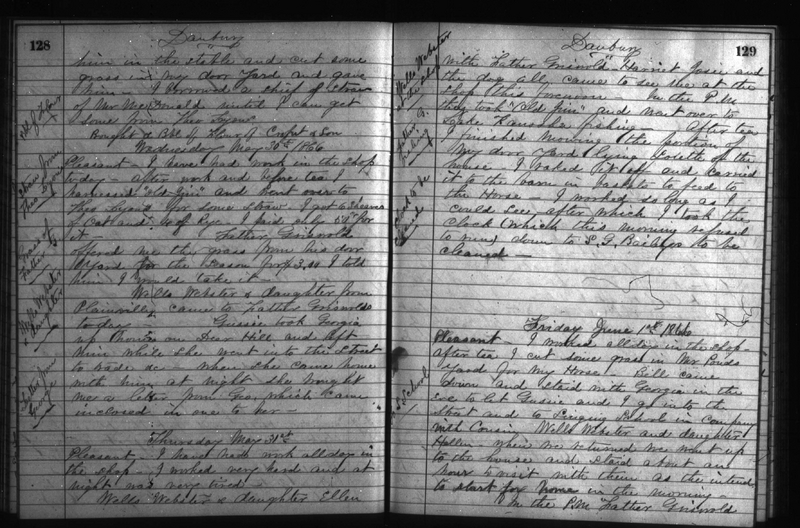 128
Danbury
him in the stable and cut some
grass in my door yard and gave
him. I borrowed a sheaf of straw
of Mr McDonald until I can get
some from Theo
Bought a Bbl of Flour of & Son
Wednesday May 30th 1866
Pleasant - I have had work in the shop
today - After work and before tea I
harnessed "Old Jim" and went over to
Theo for some straw. I got 6 sheaves
of oat and of Rye. I paid only for
it Father Griswold
offered me the grass from his door
yard for the season for I told
him I would take it -
Wells Webster & daughter from
Plainville came to Father Griswolds
to day Gussie took Georgia
up home on Deer Hill and left
him while she went into the Street
to trade &c - when she came home
with him at night she brought
me a letter from Geo which came
inclosed in one to her -
Thursday May 31st
Pleasant - I have had work all day in
the shop - I worked very hard and at
night was very tired -
Wells Webster & daughter Ellen
Bbl of Flour
Straw from
Theo
Grass of
Father G
Wells Webster
& daughter
Letter from
George
129
Danbury
with Father Griswold Harriet Josie and
the dog all came to see me at the
shop this forenoon In the P.M.
they took "Old Jim" and went over to
Lake fishing - After tea
I finished mowing the portion of
my door yard lying of the
house - I raked it off and carried
it to the barn in baskets to feed to
the Horse I worked as long as I
could see after which I took the
clock (which this morning refused
to run) down to Baileys to be
cleaned -
Friday June 1st 1866
Pleasant - I worked all day in the shop -
After tea I cut some grass in Mr Ponds
yard for my Horse - Bill came
down and staid with Georgia in the
eve to let Gussie and I go into the
street and to Singing School in company
with Cousin Wells Webster and daughter
- when we returned we went up
to the house and staid about an
hour to visit with them as they intend
to start for home in the morning -
In the P.M. Father Griswold
Wells Webster
at the shop
Father G.
fishing
Clock to be
cleaned
School